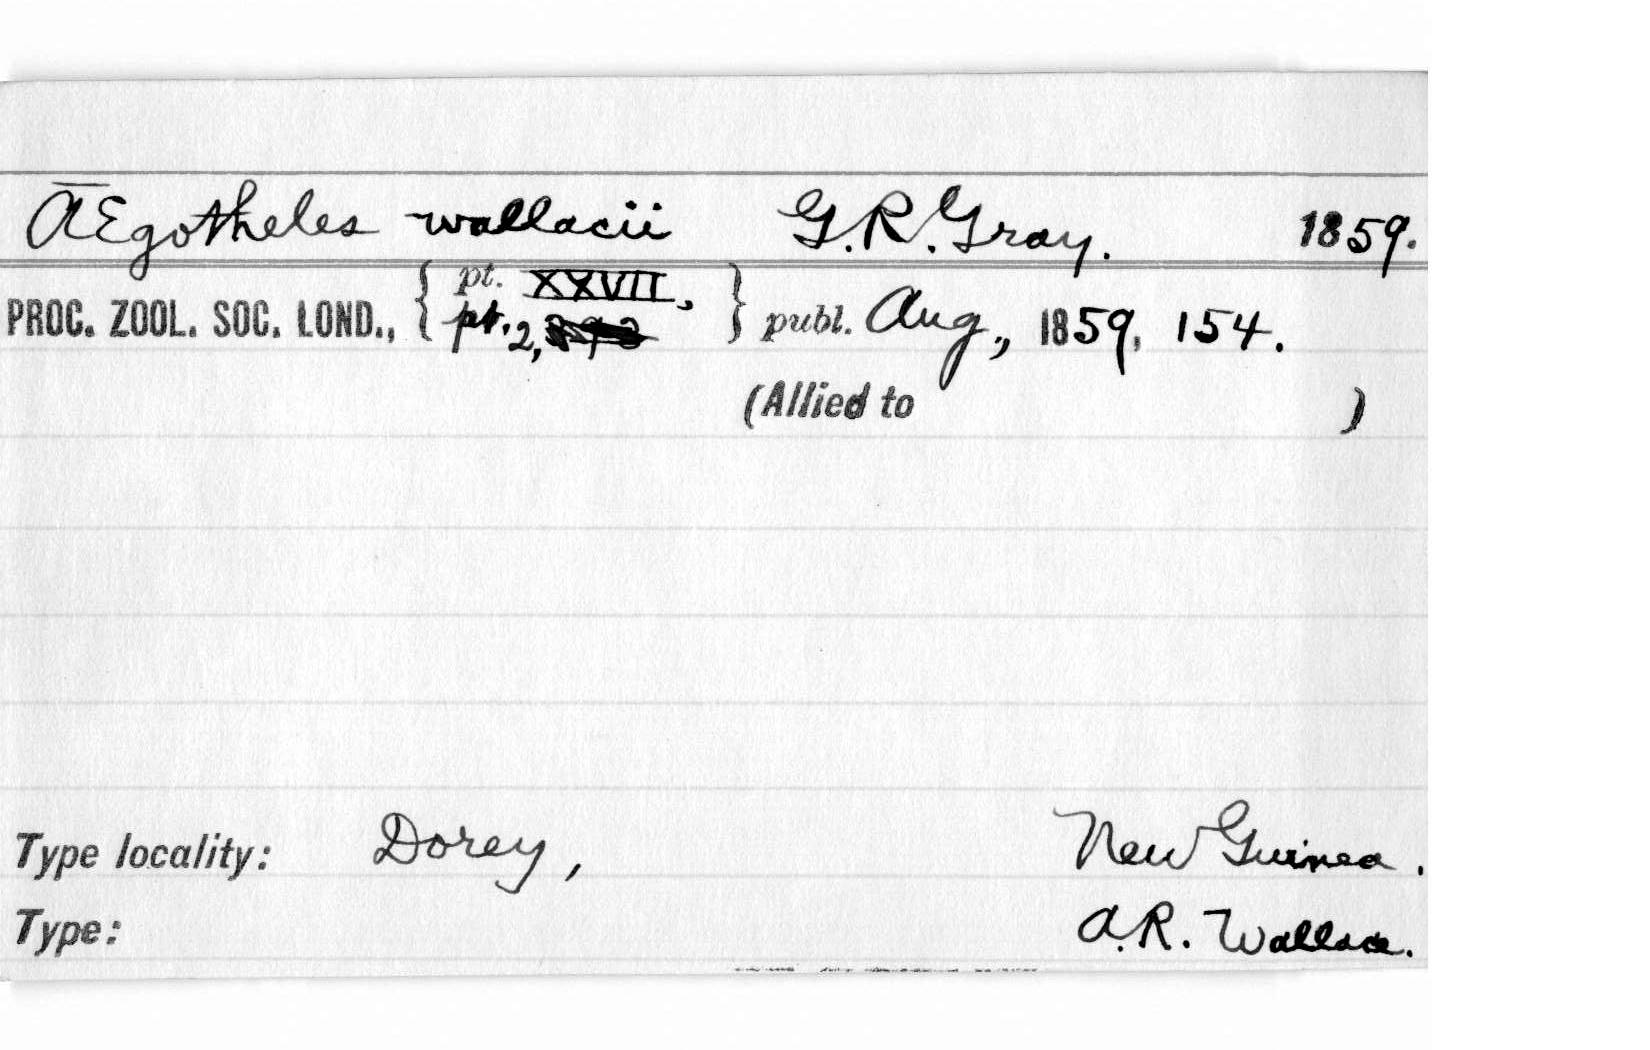 ÆEgotheles wallacii G.R.Gray. 1859.
PROC. ZOOL. SOC. LOND., { pt. XXVII, pt. 2, } publ. Aug., 1859, 154.
(Allied to )
Type locality: Dorey, New Guinea.
Type: A.R. Wallace.